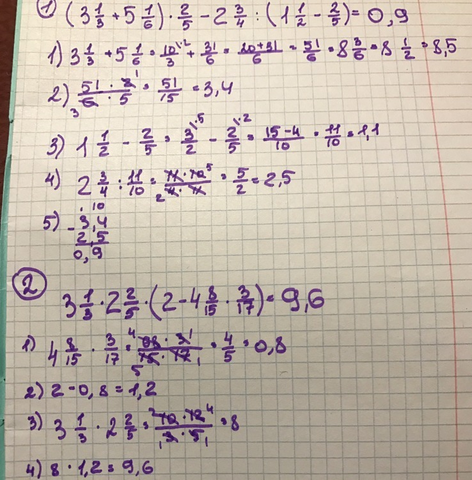 1) (3 1/3 + 5 1/6) · 2/5 - 2 3/4 : (1 1/2 - 2/5) = 0,9
1) 3 1/3 + 5 1/6 = 10/3 ·2 + 31/6 = 20+31/6 = 51/6 = 8 3/6 = 8 1/2 = 8,5
2) 51 · 2 1/6 · 5 3 = 51/15 = 3,4
3) 1 1/2 - 2/5 = 3/2 ·5 - 2/5 ·2 = 15-4/10 = 11/10 = 1,1
4) 2 3/4 : 11/10 = 11 · 10 5/2 4 · 11 = 5/2 = 2,5
. 10
5) - 3,4
2,5
0,9
2
3 1/3 · 2 2/5 · (2 - 4 8/15 · 3/17) = 9,6
1) 4 8/15 · 3/17 = 4 68 · 3 1/5 15 · 17 1 = 4/5 = 0,8
2) 2 - 0,8 = 1,2
3) 3 1/3 · 2 2/5 = 2 10 · 12 4/1 3 · 5 1 = 8
4) 8 · 1,2 = 9,6